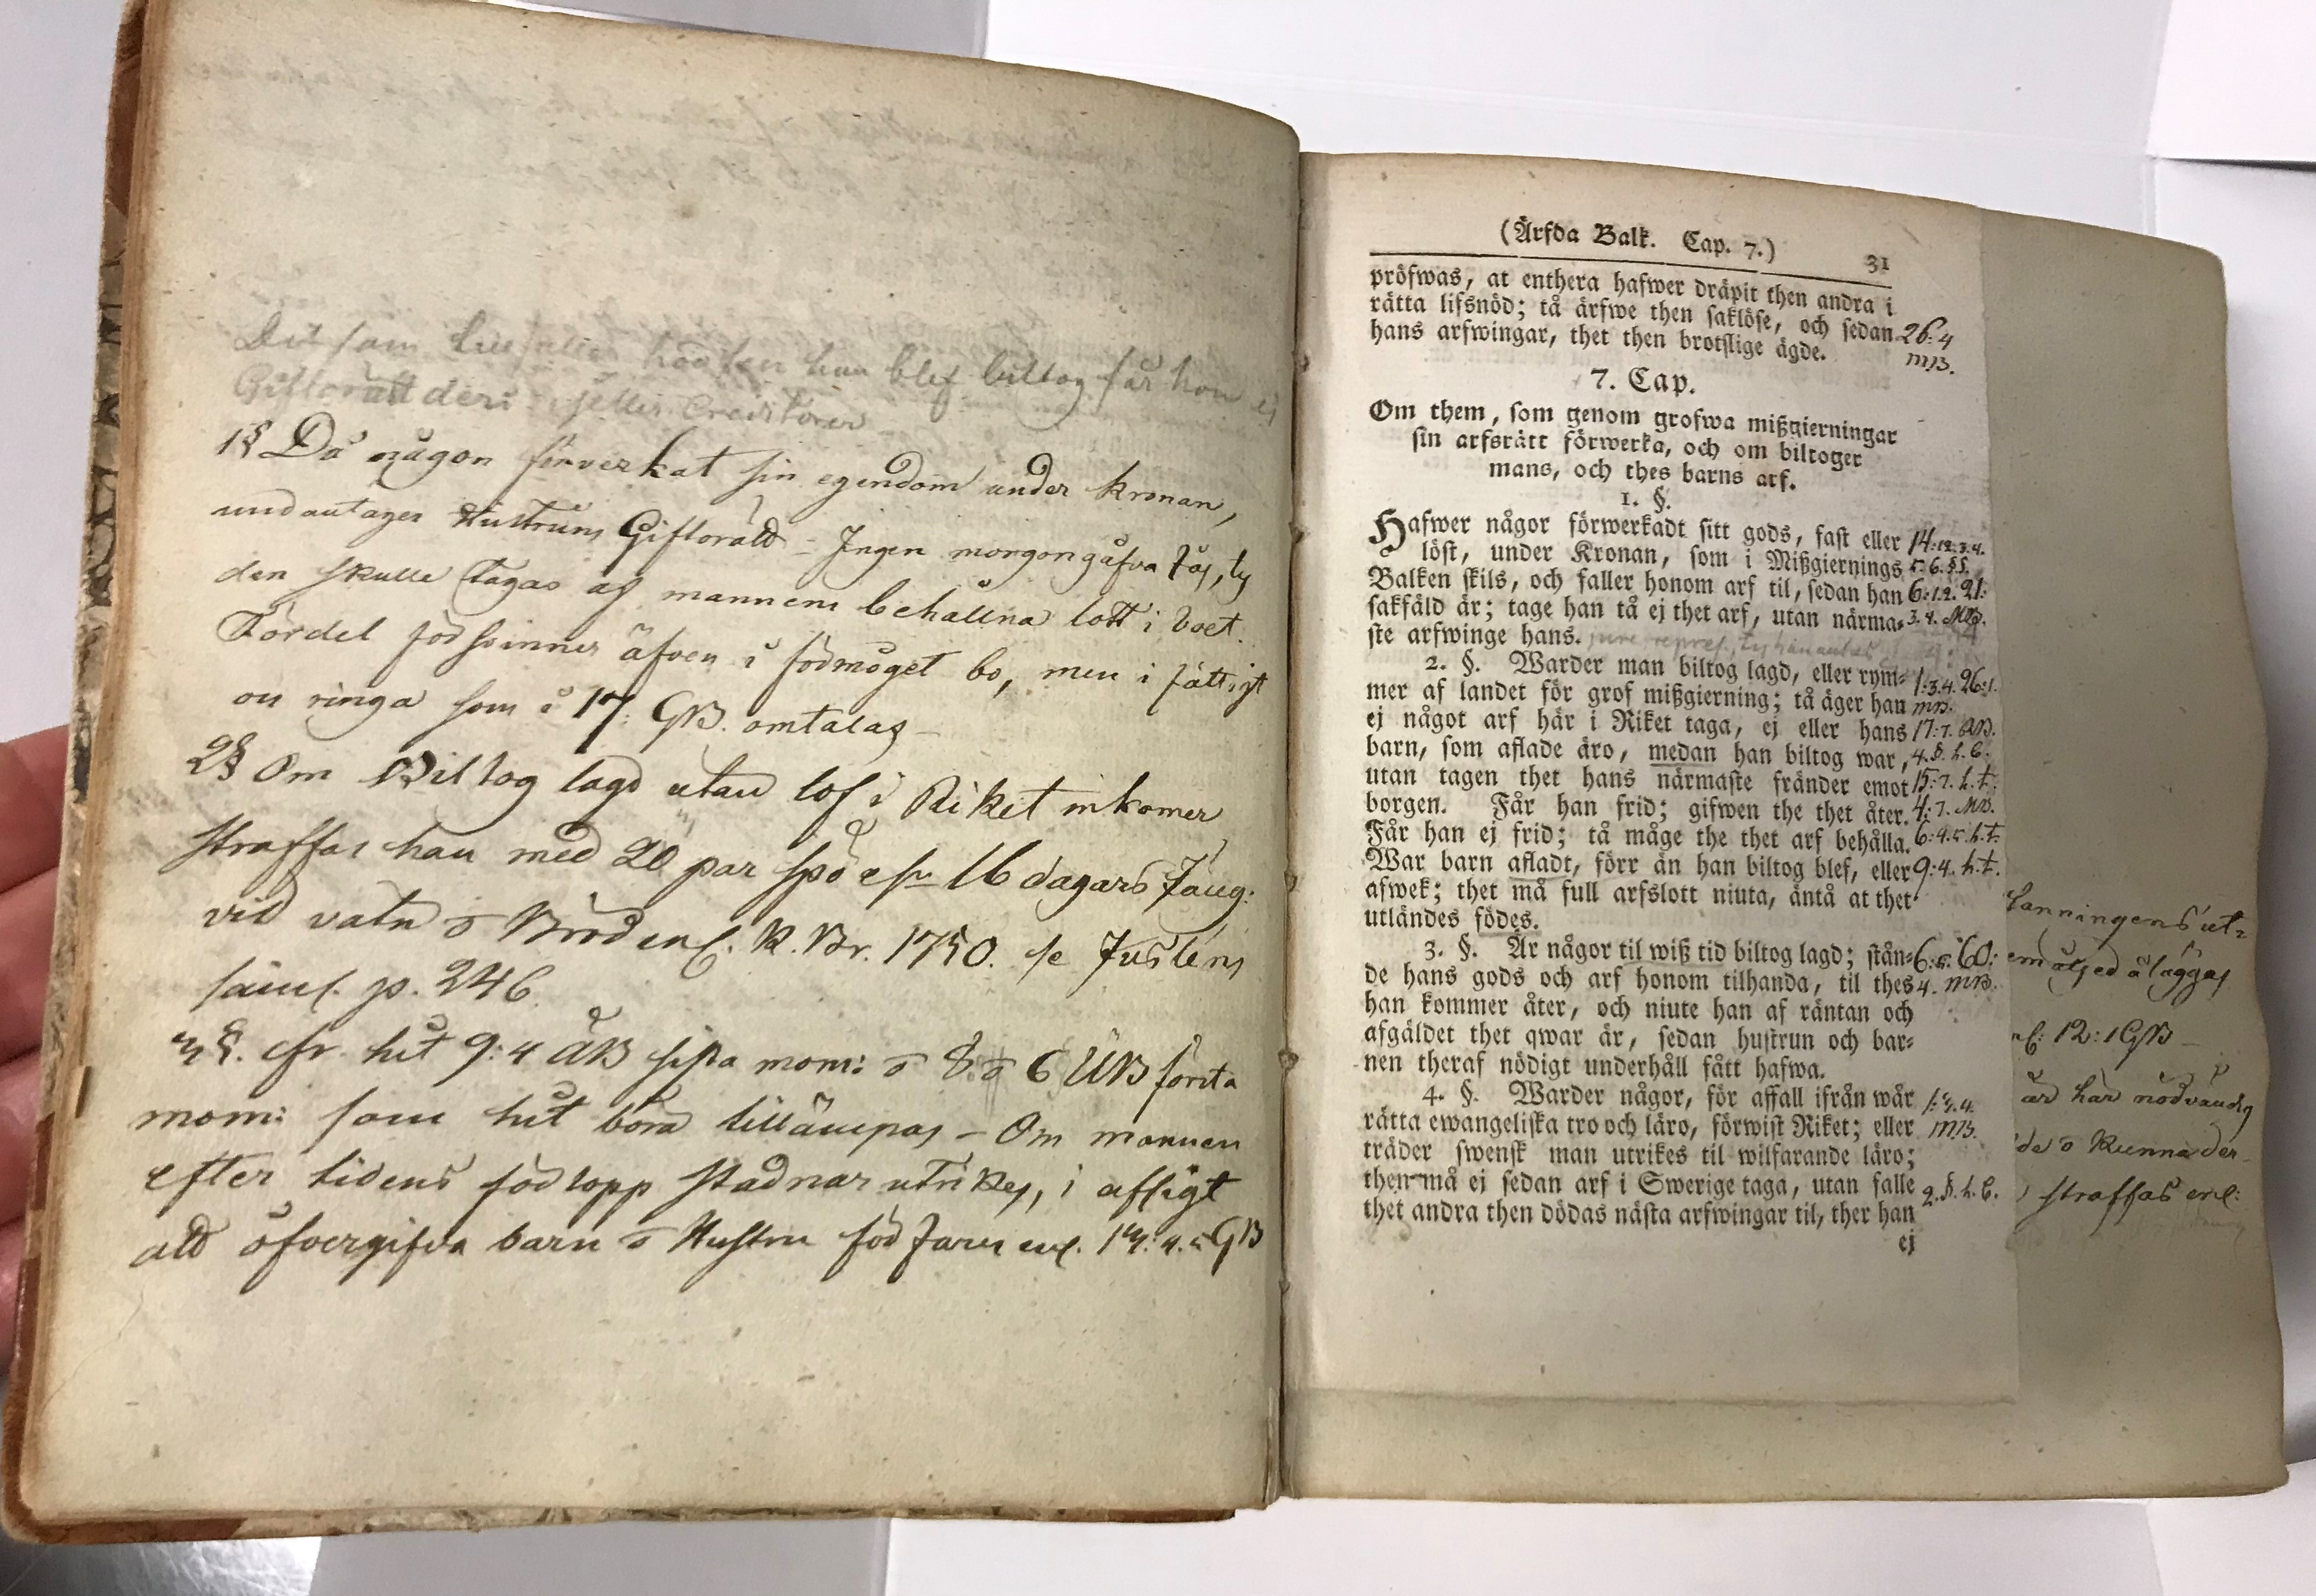 Det som hon sen han blef biltog får hon ej
Giftorätt deri eller Creditorer
1§ Då någon förverkat sin egendom under Kronan,
undantages Hustruns Giftorätt - Ingen morgongåfva fås, ty
den skulle tagas af mannens behållna lott i boet.
Fördel försvinner äfven i förmöget bo, men i fattigt
ou ringa som i 17: GB. omtalas -
2§ Om Biltog lagd utan lof i Riket inkomer
straffas han med 20 par spö el. 16 dagars fäng:
vid vatn o Bröd enl. K. Br. 1750. se Jusléns
saml. p. 246
3§. cfr. hit 9: 4 ÄB sista mom: o 8 o 6 UB första
mom: som hit böra tillämpas - Om mannen
efter tidens förlopp stadnar utrikes, i afsigt
att öfvergifva barn o Hustru förfares enl. 13: 4. 5 GB
(Ärfda Balk. Cap. 7.) 31
pröfwas, at enthera hafwer dräpit then andra i
rätta lifsnöd; tå ärfwe then saklöse, och sedan 26: 4
hans arfwingar, thet then brotslige ägde. MB.
7. Cap.
Om them, som genom grofwa mißgierningar
sin arfsrätt förwerka, och om biltoger
mans, och thes barns arf.
1. §.
Hafwer någor förwerkadt sitt gods, fast eller 14: 1.2.3.4.
löst, under Kronan, som i Mißgiernings 5. 6. §§.
Balken skils, och faller honom arf til, sedan han 6: 1.2. 21:
sakfäld är; tage han tå ej thet arf, utan närma= 3. 4. MB.
ste arfwinge hans. jure repræs.
2. §. Warder man biltog lagd, eller rym= 1: 3.4. 26: 1.
mer af landet för grof mißgierning; tå äger han MB.
ej något arf här i Riket taga, ej eller hans 17: 7. ÄB.
barn, som aflade äro, medan han biltog war, 4. §. h. C.
utan tagen thet hans närmaste fränder emot 15: 7. h. t.
borgen. Får han frid; gifwen the thet åter. 4: 7. MB.
Får han ej frid; tå måge the thet arf behålla. 6: 4. 5. h. t.
War barn afladt, förr än han biltog blef, eller 9: 4. h. t.
afwek; thet må full arfslott niuta, äntå at thet
utländes födes.
3. §. Är någor til wiß tid biltog lagd; stån= 6: 5. 60:
de hans gods och arf honom tilhanda, til thes 4. MB.
han kommer åter, och niute han af räntan och
afgäldet thet qwar är, sedan hustrun och bar=
nen theraf nödigt underhåll fått hafwa.
4. §. Warder någor, för affall ifrån wår 1: 3. 4.
rätta ewangeliska tro och läro, förwist Riket; eller MB.
träder swensk man utrikes til wilfarande läro;
then må ej sedan arf i Swerige taga, utan falle 2. §. h. C.
thet andra then dödas nästa arfwingar til, ther han
ej
lanningens ut=
åläggas
12: 1 GB -
är här nödvändig
de o kunna der
straffas enl: